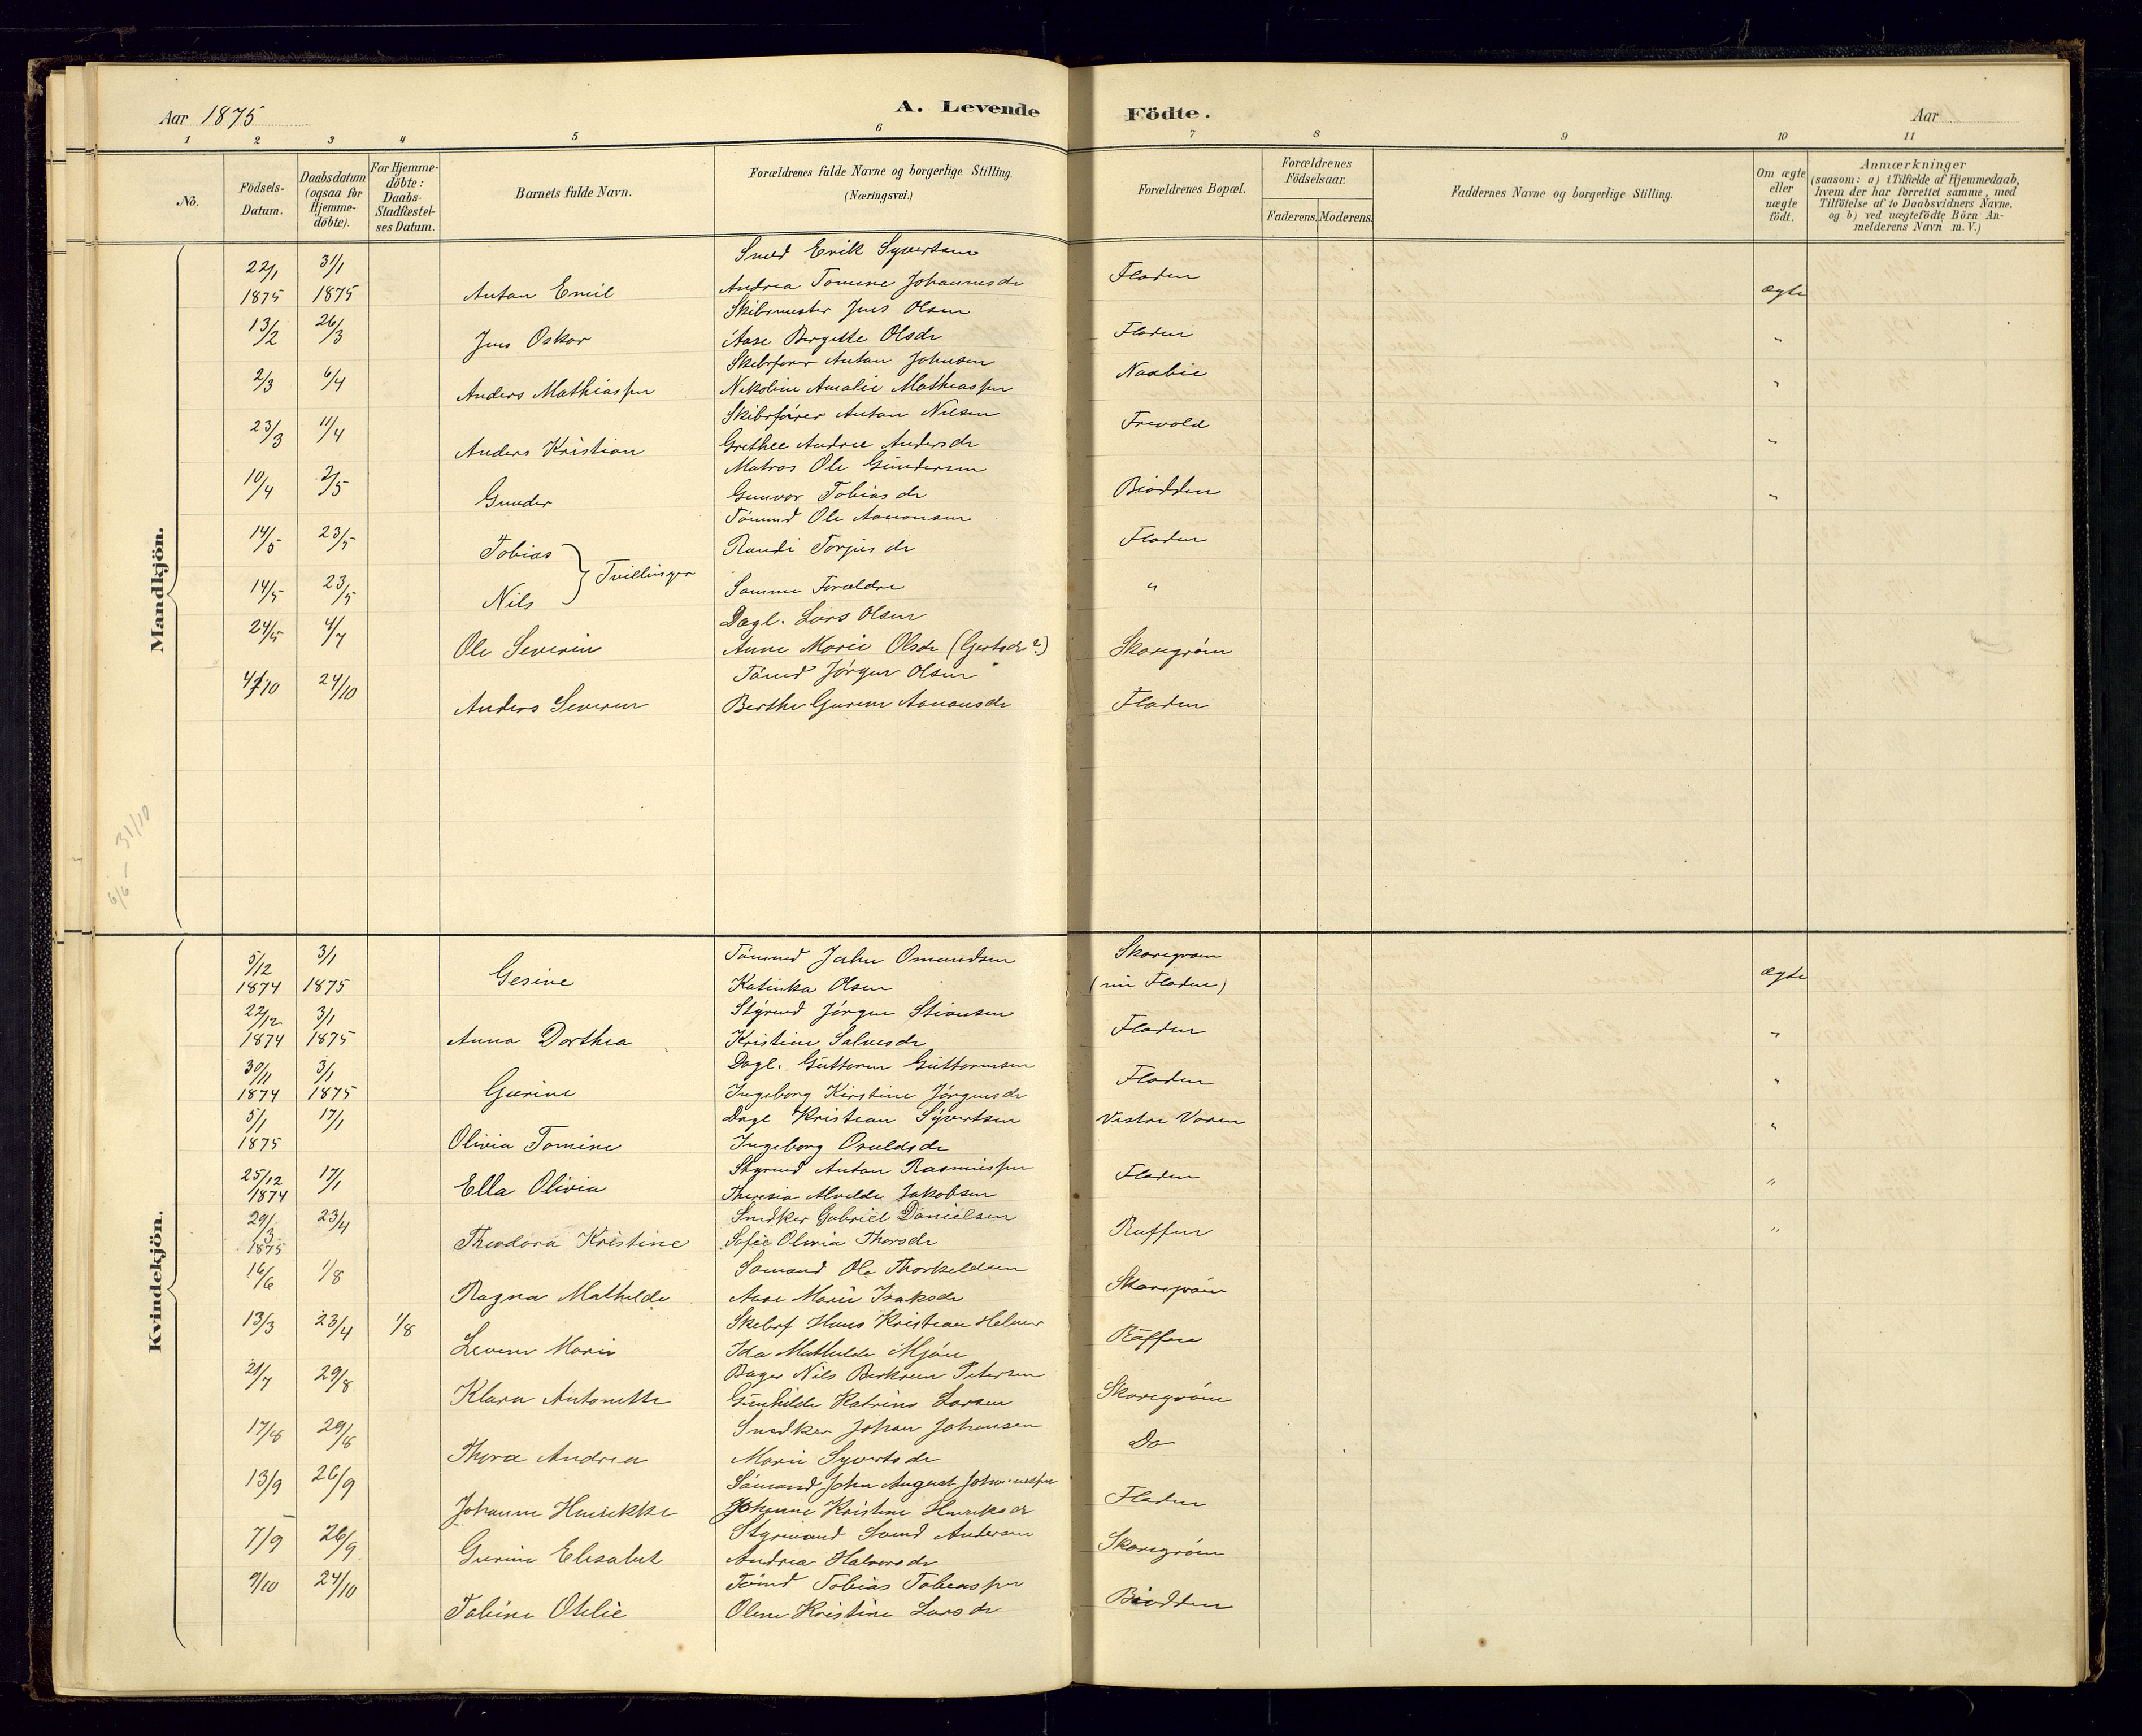 Aar 1875
A. Levende Födte.
Aar
1 2 3 4 5 6 7 8 9 10 11
No.
Födsels-Datum.
Daabsdatum (ogsaa for Hjemmedöbte).
For Hjemmedöbte: Daabs-Stadfæstelses Datum.
Barnets fulde Navn.
Forældrenes fulde Navne og borgerlige Stilling. (Næringsvei.)
Forældrenes Bopæl.
Forældrenes Födselsaar.
Faderens. Moderens.
Faddernes Navne og borgerlige Stilling.
Om ægte eller uægte födt.
Anmærkninger (saasom: a) i Tilfælde af Hjemmedaab, hvem der har forrettet samme, med Tilföielse af to Daabsvidners Navne, og b) ved uægtefödte Börn Anmelderens Navn m. V.)
Mandkjön.
Smed Erik Syvertsen
22/1 1875 31/1 1875 Anton Emil Andrea Tomine Johannesdr Fladen ægte
Skibsmester Jens Olsen
13/2 26/3 Jens Oskar Aase Bergitte Olsdr Fladen "
Skibsfører Anton Johnsen
2/3 6/4 Anders Mathiassen Nikoline Amalie Mathiassen Naxbie "
Skibsfører Anton Nilsen
23/3 11/4 Anders Kristian Grethee Andree Andersdr Frevold "
Matros Ole Gundersen
10/4 2/5 Gunder Gunvor Tobiasdr Biodden "
Tömmd Ole Aanonsen
14/5 23/5 Tobias Randi Torjusdr Fladen
Tvillinger
14/5 23/5 Nils Samme Forældre "
Dagl. Lars Olsen
24/5 4/7 Ole Severin Anne Marie Olsdr (Gertsdr?) Skaregrøm
Tömd Jørgen Olsen
4/10 24/10 Anders Severin Berthe Gurine Aanonsdr Fladen
6/6 - 31/10
Kvindekjön.
5/12 1874 3/1 1875 Gesine Tömmd John Omundsen Skaregrøm
Katinka Olsen (nu Fladen) ægte
Styrmd Jørgen Stiansen
22/12 1874 3/1 1875 Anna Dorthea Kristine Salvesdr Fladen "
Dagl. Guttorm Guttormsen
30/11 1874 3/1 1875 Gurine Ingeborg Kirstine Jørgensdr Fladen "
Dagl Kristian Syvertsen Vestre Voren "
5/1 1875 17/1 Olivia Tomine Ingeborg Osuldsdr
Styrmd Anton Rasmussen
25/12 1874 17/1 Ella Olivia Theresia Alvilde Jakobsen Fladen "
Snedker Gabriel Danielsen
29/3 1875 23/4 Theodora Kristine Sofie Olivia Thorsdr Ruffen "
Sømand Ole Thorkeldsen
16/6 1/8 Ragna Mathilde Aase Marie Isaksdr Skaregrøm
Skibsf Hans Kristian Helmer
13/3 23/4 1/8 Levine Marie Ida Mathilde Mjøn Røffen
Bager Nils Berkreen Petersen
21/7 29/8 Klara Antonette Gunhilde Katrine Larsen Skaregrøm
Snedker Johan Johansen
17/8 29/8 Thora Andrea Marie Syvertsdr Do
Sömand John August Johannessen
13/9 26/9 Johanne Henrikke Johanne Kristine Henriksdr Fladen
Styrmand Svend Andersen
7/9 26/9 Gurine Elisabet Andrea Halvorsdr Skaregrøm
Tömd Tobias Tobiassen
9/10 24/10 Tobine Otilie Olene Kristine Larsdr Biodden